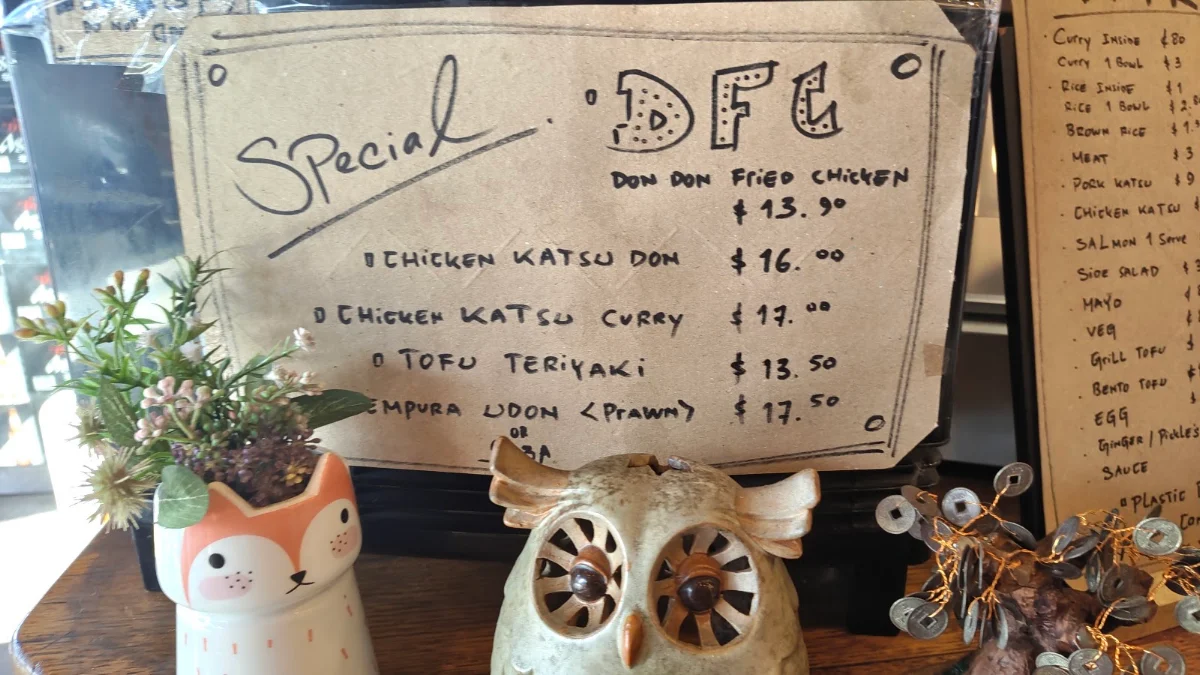 Special
DFC
DON DON FRIED CHICKEN
$ 13.90
CHICKEN KATSU DON $ 16.00
CHICKEN KATSU CURRY $ 17.00
TOFU TERIYAKI $ 13.50
EMPURA UDON <PRAWN> $ 17.50
OR
Curry INSIDE ¢80
Curry 1 Bowl $3
RICE INSIDE $1
RICE 1 BOWL $2.
BROWN RICE $1.
MEAT $3
PORK KATSU $9
CHICKEN KATSU
SALMON 1 Serve
SIDE SALAD $3
MAYO
VEG
Grill TOFU $
BENTO TOFU
EGG
GINGER / Pickle's
SAUCE
PLASTIC